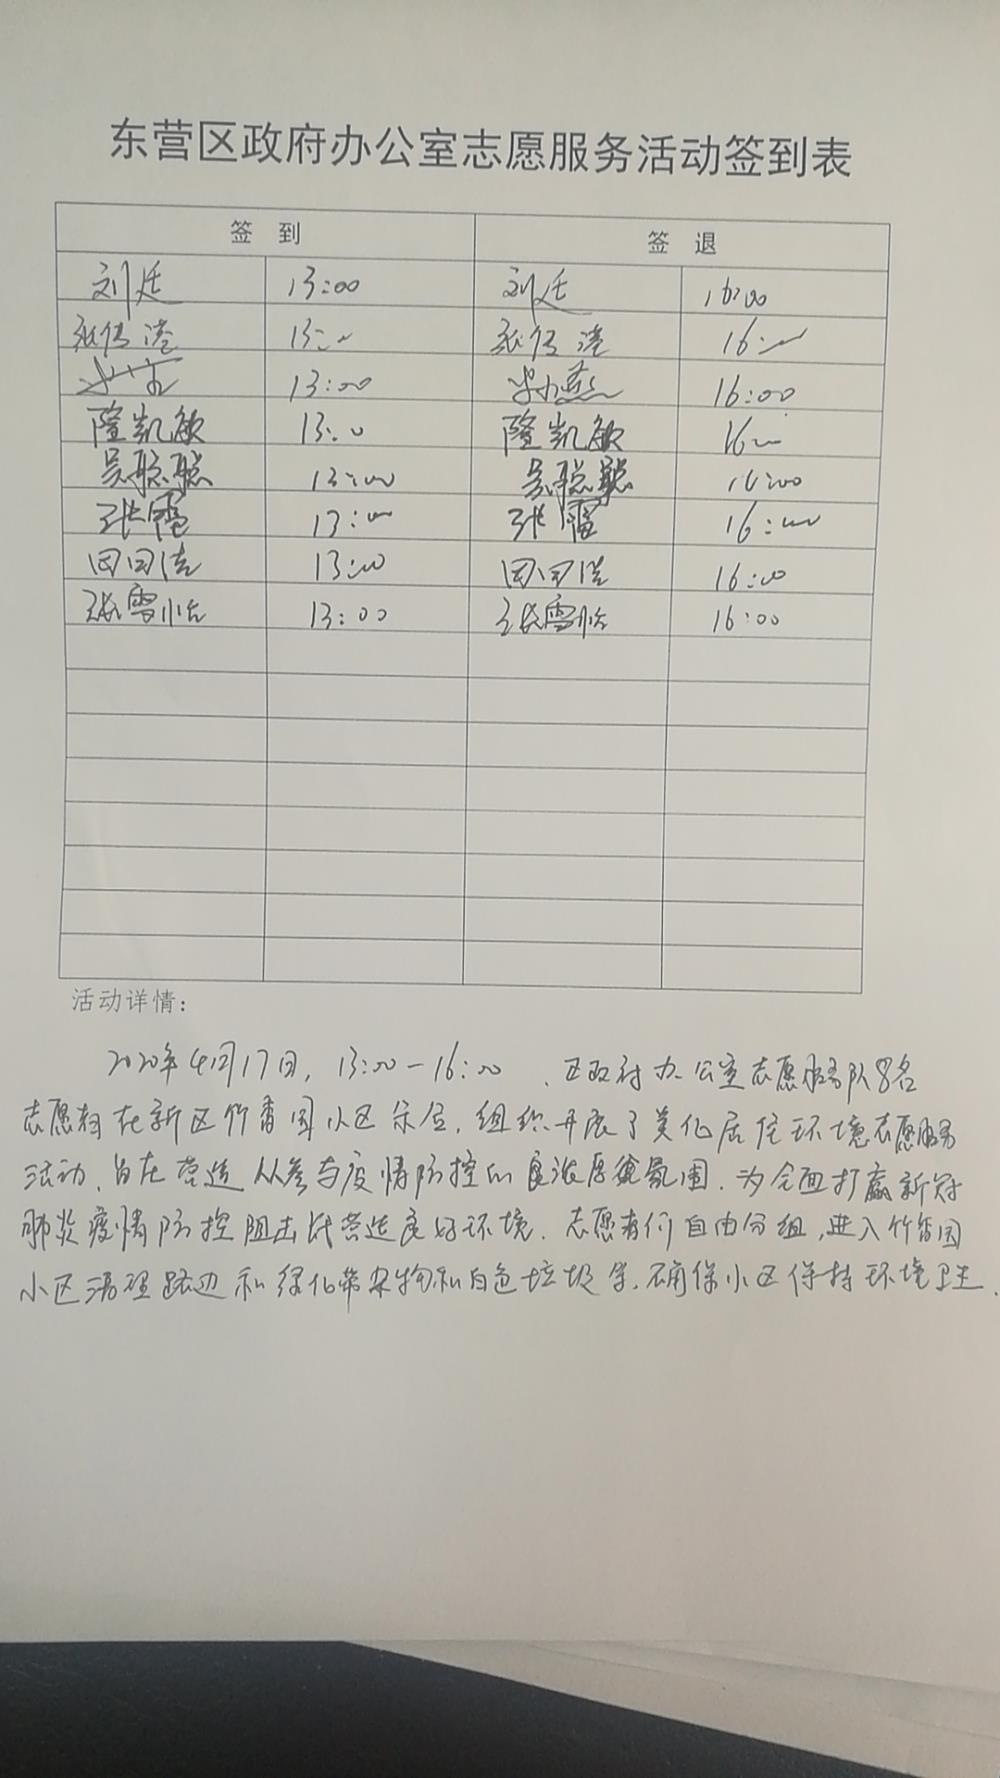 东营区政府办公室志愿服务活动签到表
签 到 签 退
刘廷 13:00 刘廷 16:00
张传港 13:00 张传港 16:00
13:00 燕 16:00
隆凯敏 13:00 隆凯敏 16:00
吴聪聪 13:00 吴聪聪 16:00
张雷 13:00 张雷 16:00
田田浩 13:00 田田浩 16:00
张雪怡 13:00 张雪怡 16:00
活动详情:
2020年4月17日, 13:00-16:00 区政府办公室志愿服务队8名
志愿者在新区竹香园小区点位,组织开展了美化居住环境志愿服务
活动,旨在营造 参与疫情防控的良浓厚氛围,为全面打赢新冠
肺炎疫情防控阻击战营造良好环境.志愿者们自由分组,进入竹香园
小区清理路边和绿化带杂物和白色垃圾等,确保小区保持环境卫生.